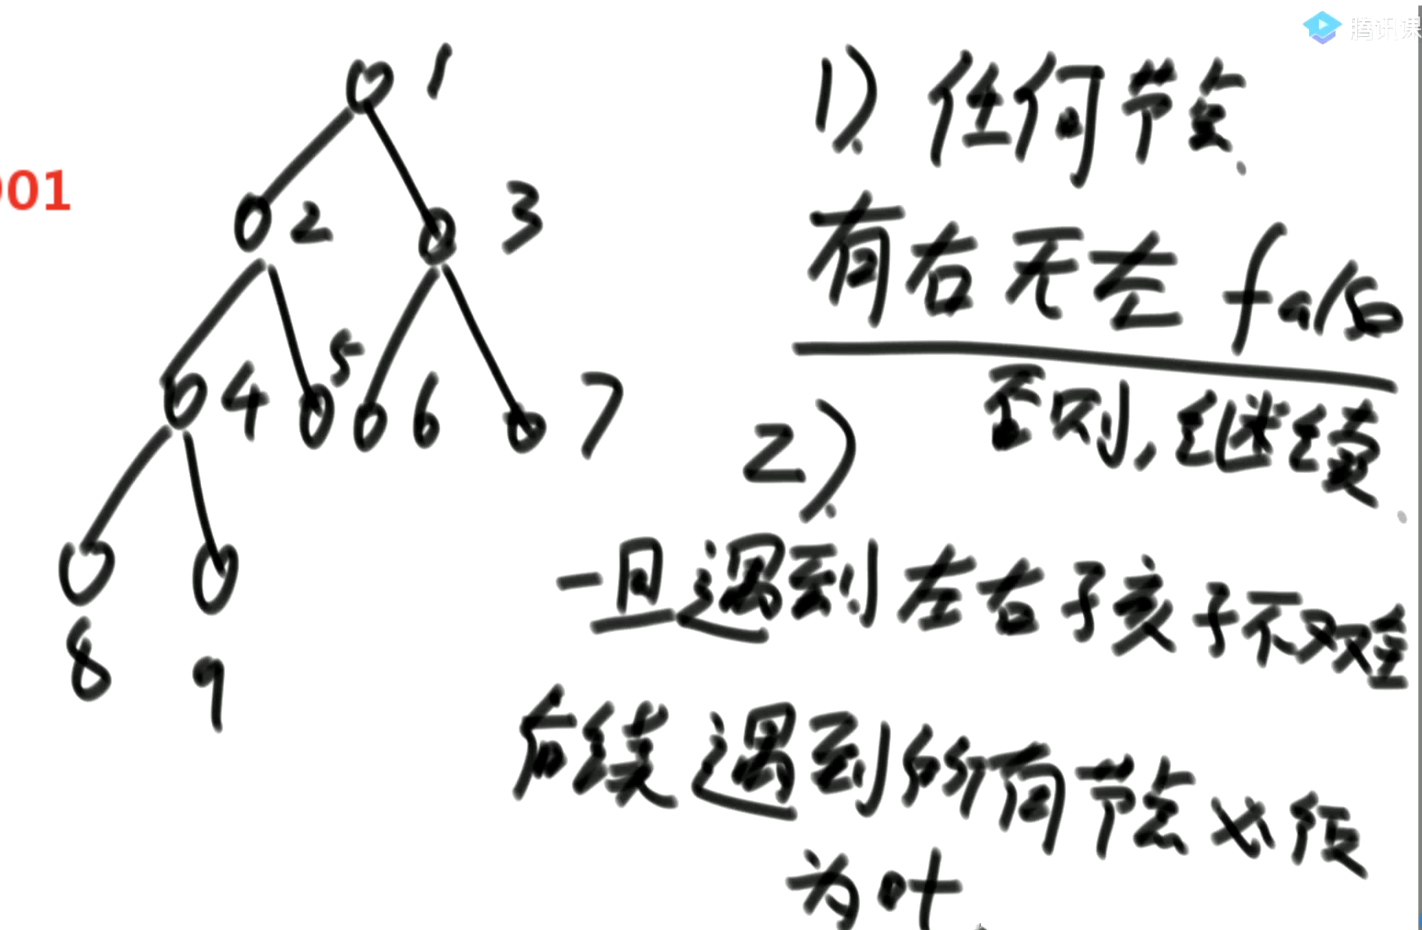 腾讯课
001
1
2
3
4
5
6
7
8
9
1) 任何节点
有右无左 false
否则,继续
2)
一旦遇到左右孩子不双全
后续遇到的所有节点必须
为叶